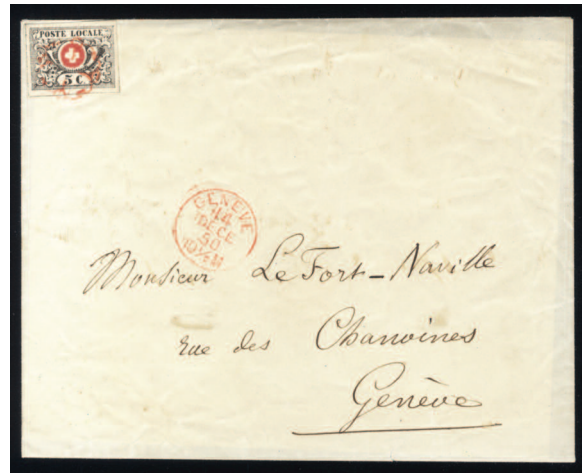 POSTE LOCALE
5 C
GENEVE
14
DECE
50
10½M
Monsieur Le Fort-Naville
rue des Chanoines
Genève